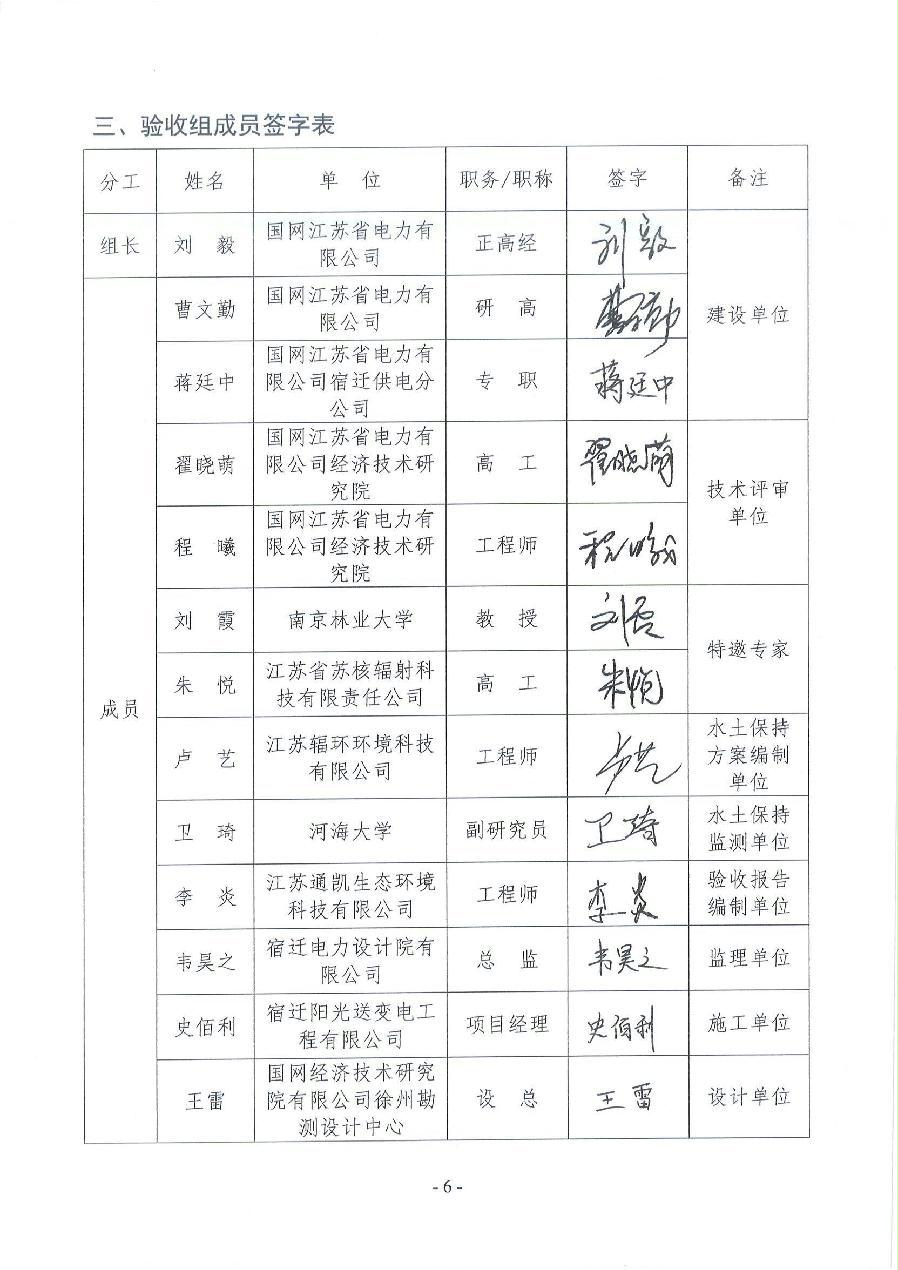 三、验收组成员签字表
分工 姓名 单 位 职务/职称 签字 备注
组长 刘 毅 国网江苏省电力有
限公司 正高经 刘毅
建设单位
成员
曹文勤 国网江苏省电力有
限公司 研 高 曹文勤
蒋廷中 国网江苏省电力有
限公司宿迁供电分
公司 专 职 蒋廷中
翟晓萌 国网江苏省电力有
限公司经济技术研
究院 高 工 翟晓萌
技术评审
单位
程 曦 国网江苏省电力有
限公司经济技术研
究院 工程师 程曦
刘 霞 南京林业大学 教 授 刘霞
特邀专家
朱 悦 江苏省苏核辐射科
技有限责任公司 高 工 朱悦
卢 艺 江苏辐环环境科技
有限公司 工程师 卢艺
水土保持
方案编制
单位
卫 琦 河海大学 副研究员 卫琦
水土保持
监测单位
李 炎 江苏通凯生态环境
科技有限公司 工程师 李炎
验收报告
编制单位
韦昊之 宿迁电力设计院有
限公司 总 监 韦昊之 监理单位
史佰利 宿迁阳光送变电工
程有限公司 项目经理 史佰利 施工单位
王雷 国网经济技术研究
院有限公司徐州勘
测设计中心 设 总 王雷 设计单位
- 6 -